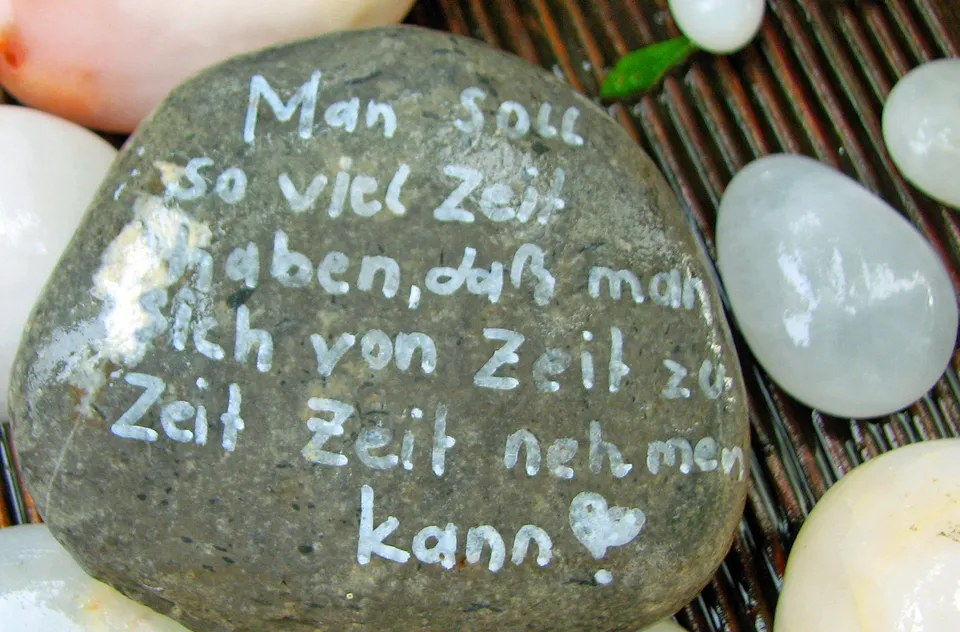 Man soll
so viel Zeit
haben, daß man
sich von Zeit zu
Zeit Zeit nehmen
kann